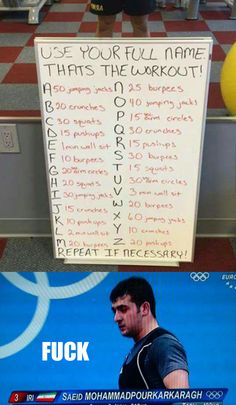 USE YOUR FULL NAME
THATS THE WORKOUT!
A 50 jumping jacks
B 20 crunches
C 30 squats
D 15 pushups
E 1 min wall sit
F 10 burpees
G 20 arm circles
H 20 squats
I 30 jumping jacks
J 15 crunches
K 10 pushups
L 2 min wall sit
M 20 burpees
N 25 burpees
O 40 jumping jacks
P 15 arm circles
Q 30 crunches
R 15 pushups
S 30 burpees
T 15 squats
U 30 arm circles
V 3 min wall sit
W 20 burpees
X 60 jumping jacks
Y 10 crunches
Z 20 pushups
REPEAT IF NECESSARY!
FUCK
3 IRI SAEID MOHAMMADPOURKARKARAGH